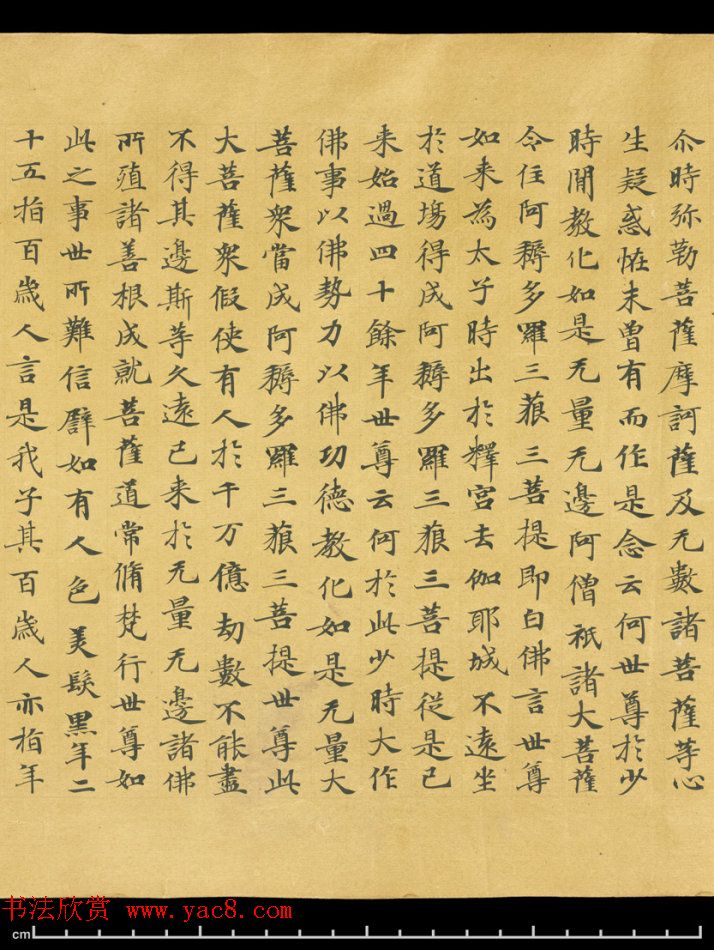 尒時弥勒菩薩摩訶薩及无數諸菩薩等心
生疑惑恠未曾有而作是念云何世尊於少
時間教化如是无量无邊阿僧祇諸大菩薩
令住阿耨多羅三藐三菩提即白佛言世尊
如来為太子時出於釋宮去伽耶城不遠坐
於道場得成阿耨多羅三藐三菩提従是已
来始過四十餘年世尊云何於此少時大作
佛事以佛勢力以佛功德教化如是无量大
菩薩衆當成阿耨多羅三藐三菩提世尊此
大菩薩衆假使有人於千万億劫數不能盡
不得其邊斯等久遠已来於无量无邊諸佛
所殖諸善根成就菩薩道常脩梵行世尊如
此之事世所難信譬如有人色美髮黑年二
十五指百歳人言是我子其百歳人亦指年
书法欣赏 www.yac8.com
cm